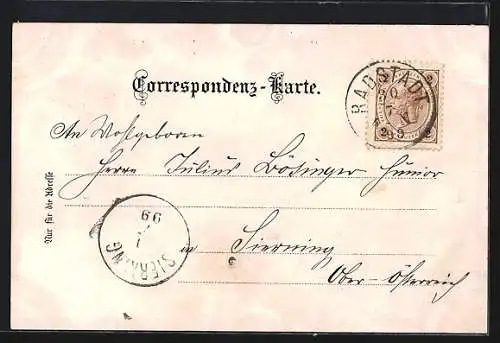 Correspondenz-Karte.
RADSTADT
2 2
An Wohlgeboren
Herrn Julius Bösinger Junior
in Sierning
Ober-Österreich
Nur für die Adresse
SIERNING
99